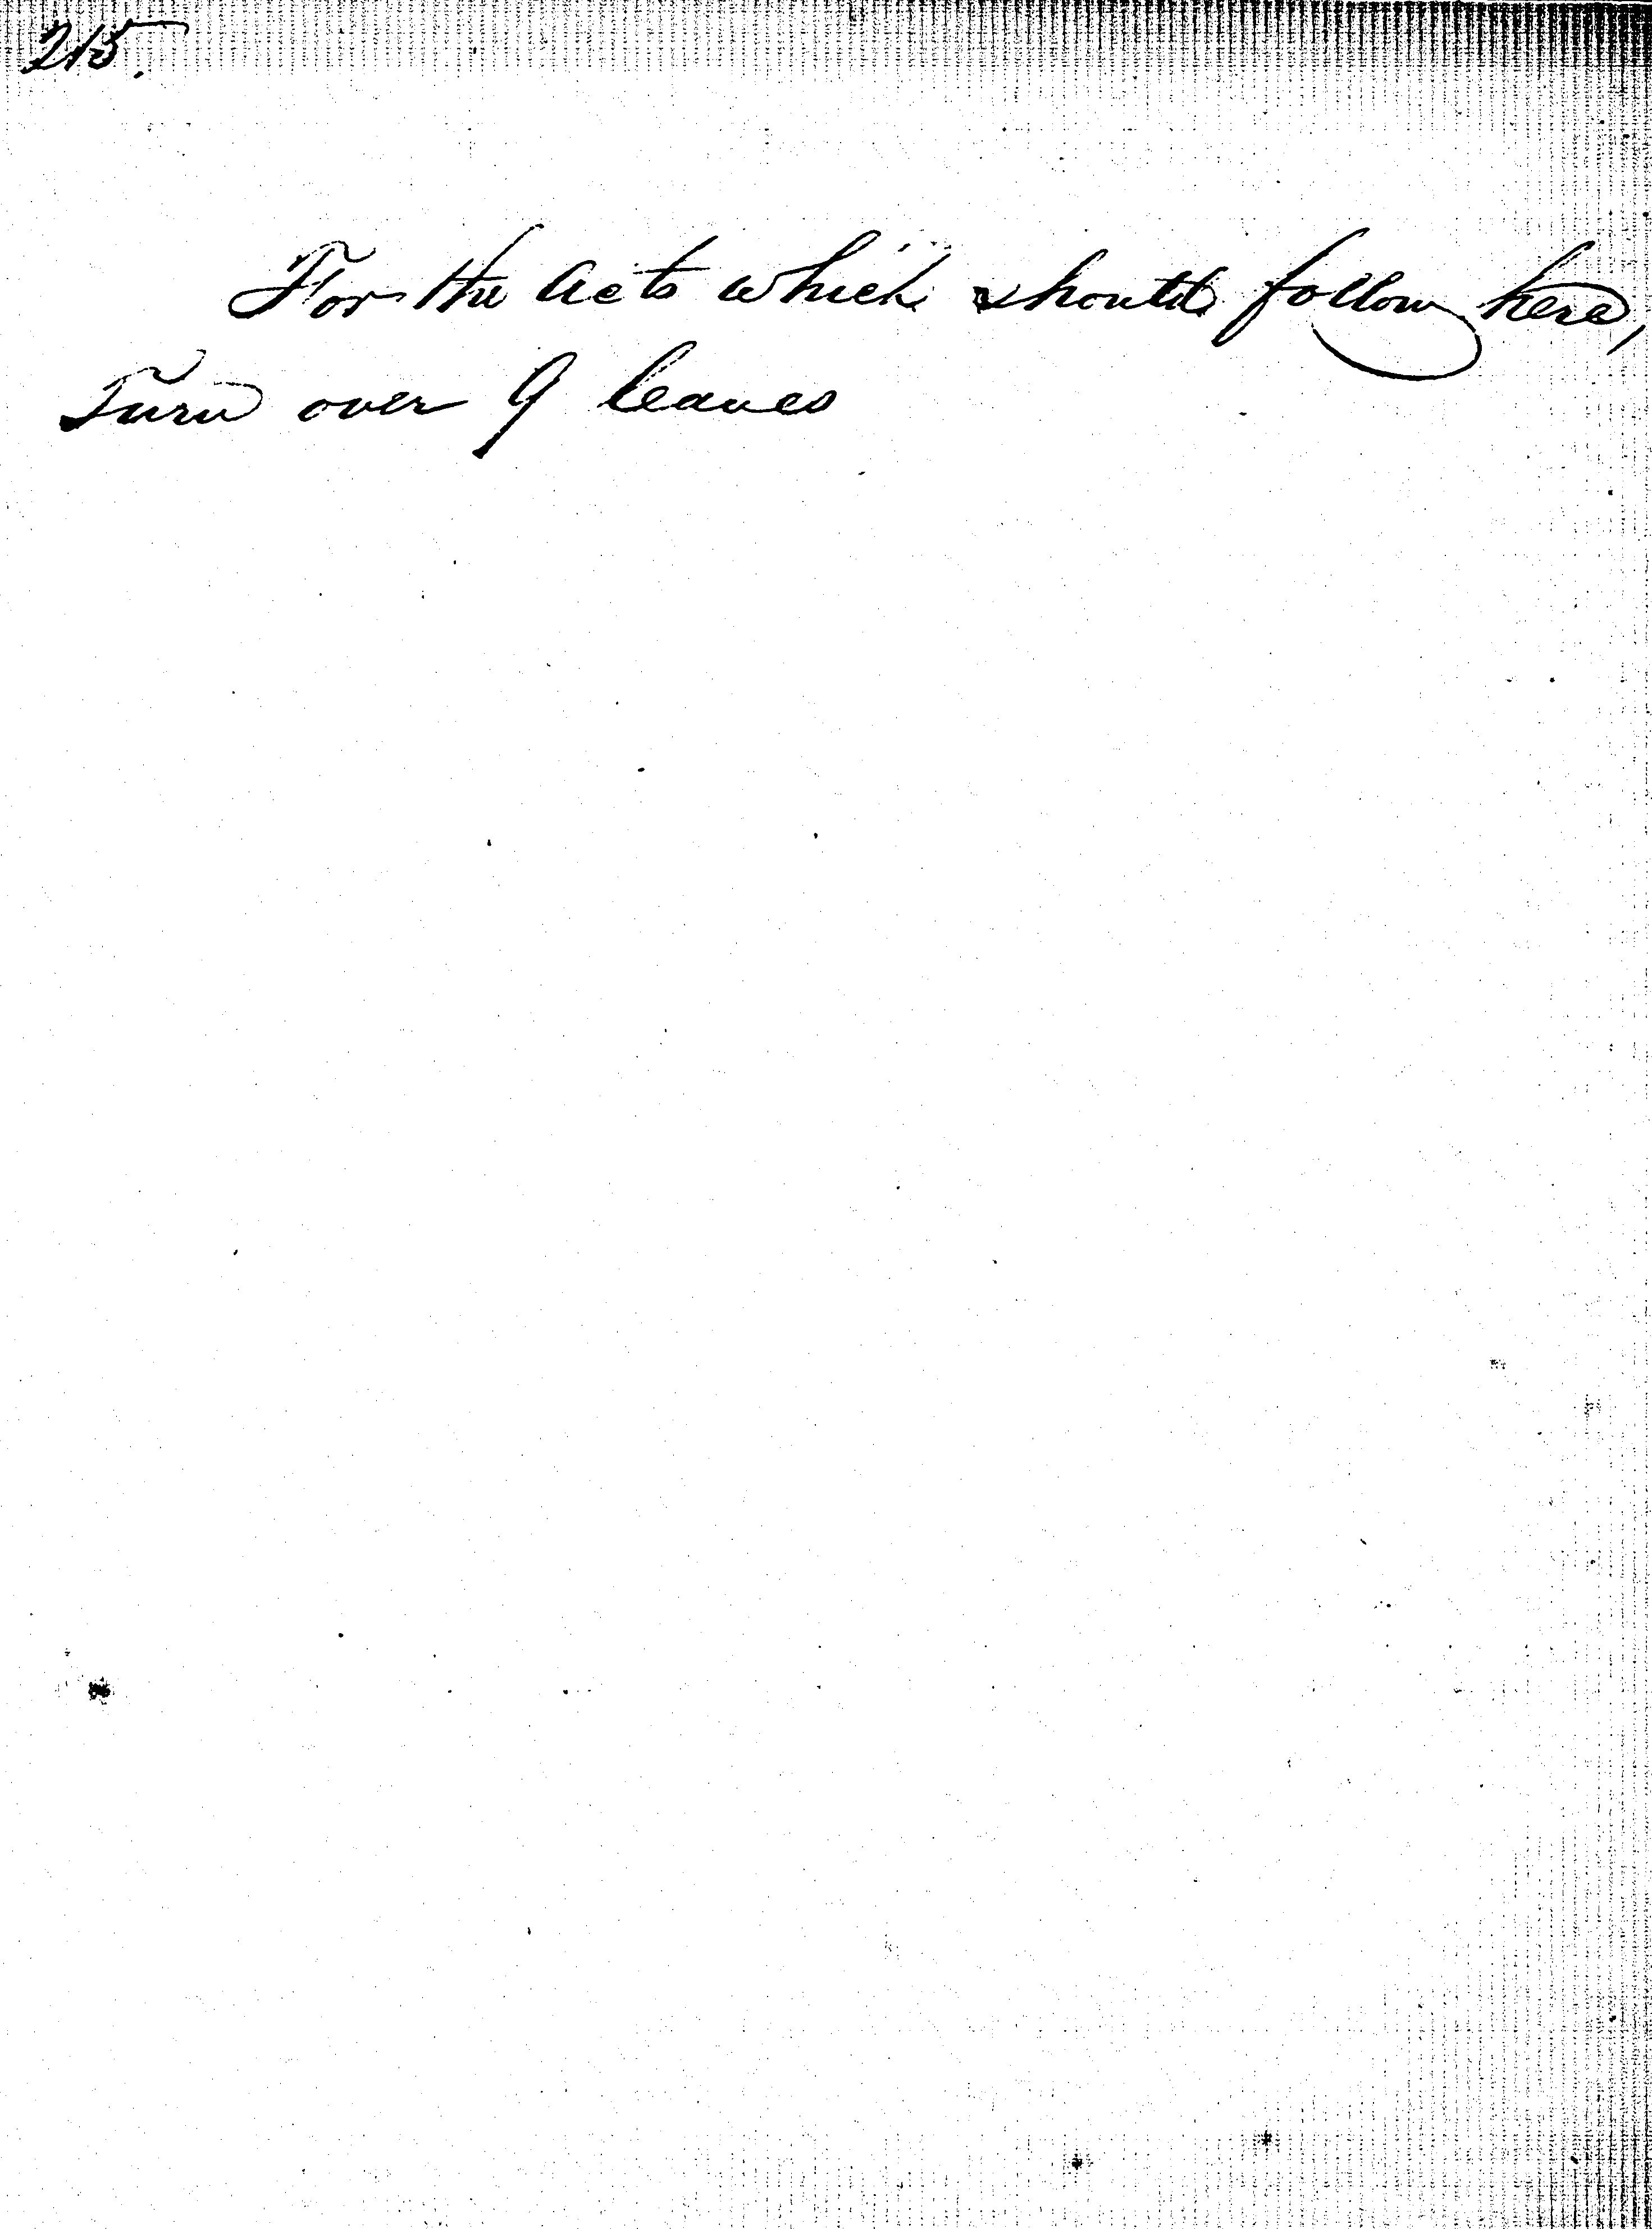 215.
For the Acts which should follow here,
Turn over 9 leaves